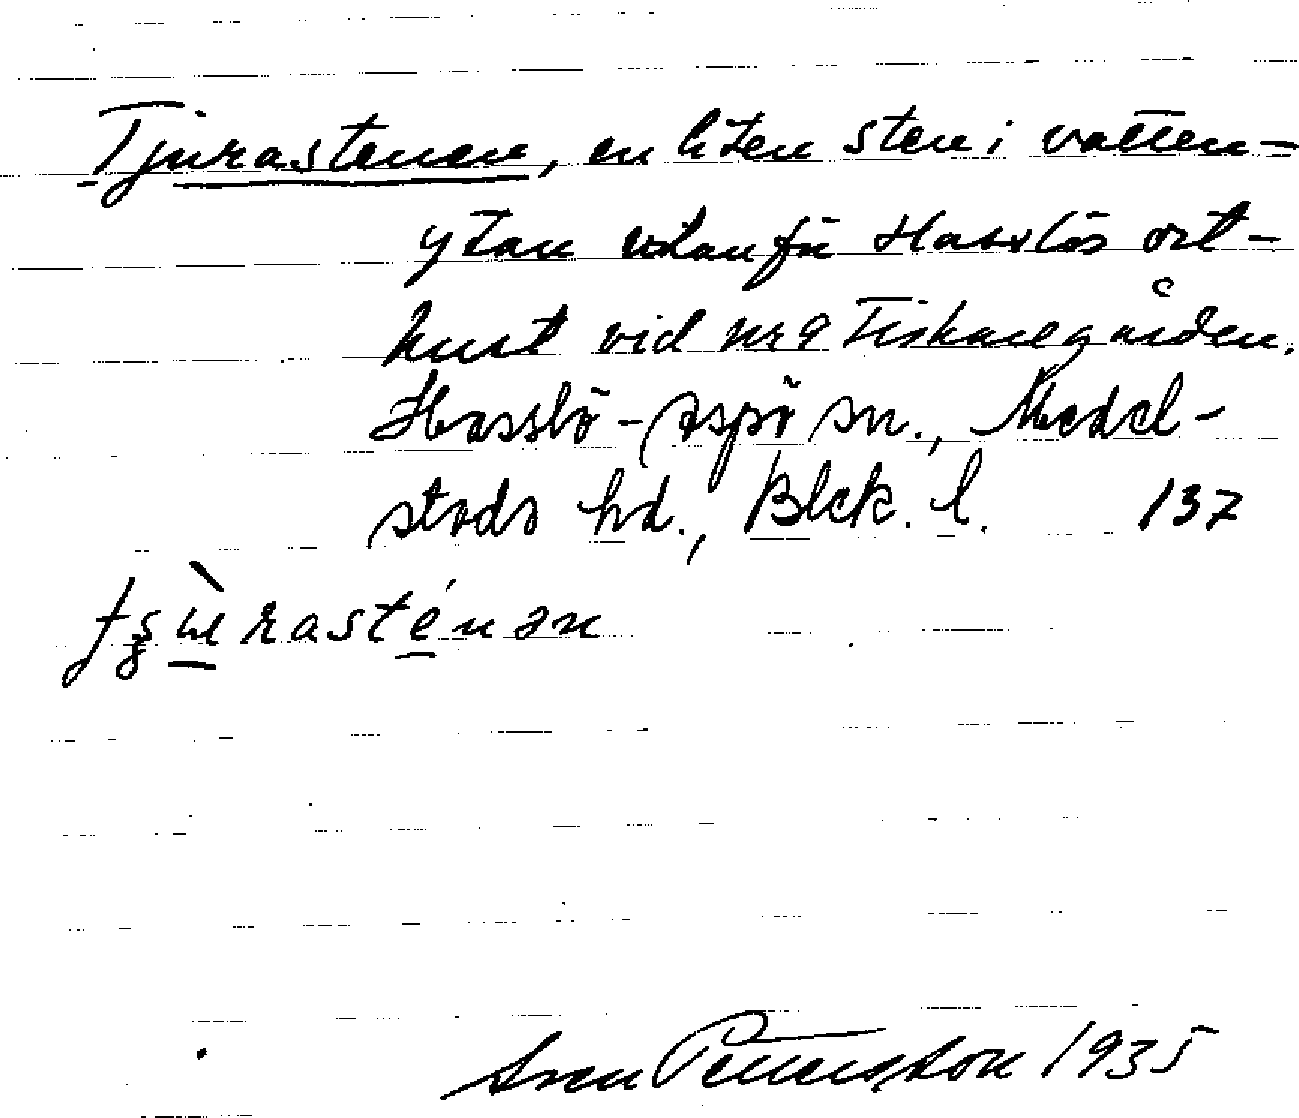 Tjurastenen, en liten sten i vatten-
ytan utanför Hasslös ost-
kust vid nr 9 Fiskaregården.
Hasslö-Aspö sn., Medel-
stads hd., Blek. l. 137
Sven Pettersson 1935